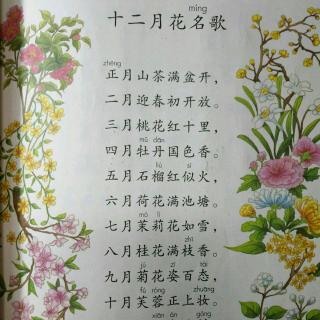 míng
十二月花名歌
zhēng
正月山茶满盆开，
二月迎春初开放。
三月桃花红十里，
mǔ dān
四月牡丹国色香。
liú sì
五月石榴红似火，
六月荷花满池塘。
mò lì
七月茉莉花如雪，
zhī
八月桂花满枝香。
jú zī tài
九月菊花姿百态，
fú róng zhuāng
十月芙蓉正上妆。
xiān ān gōng